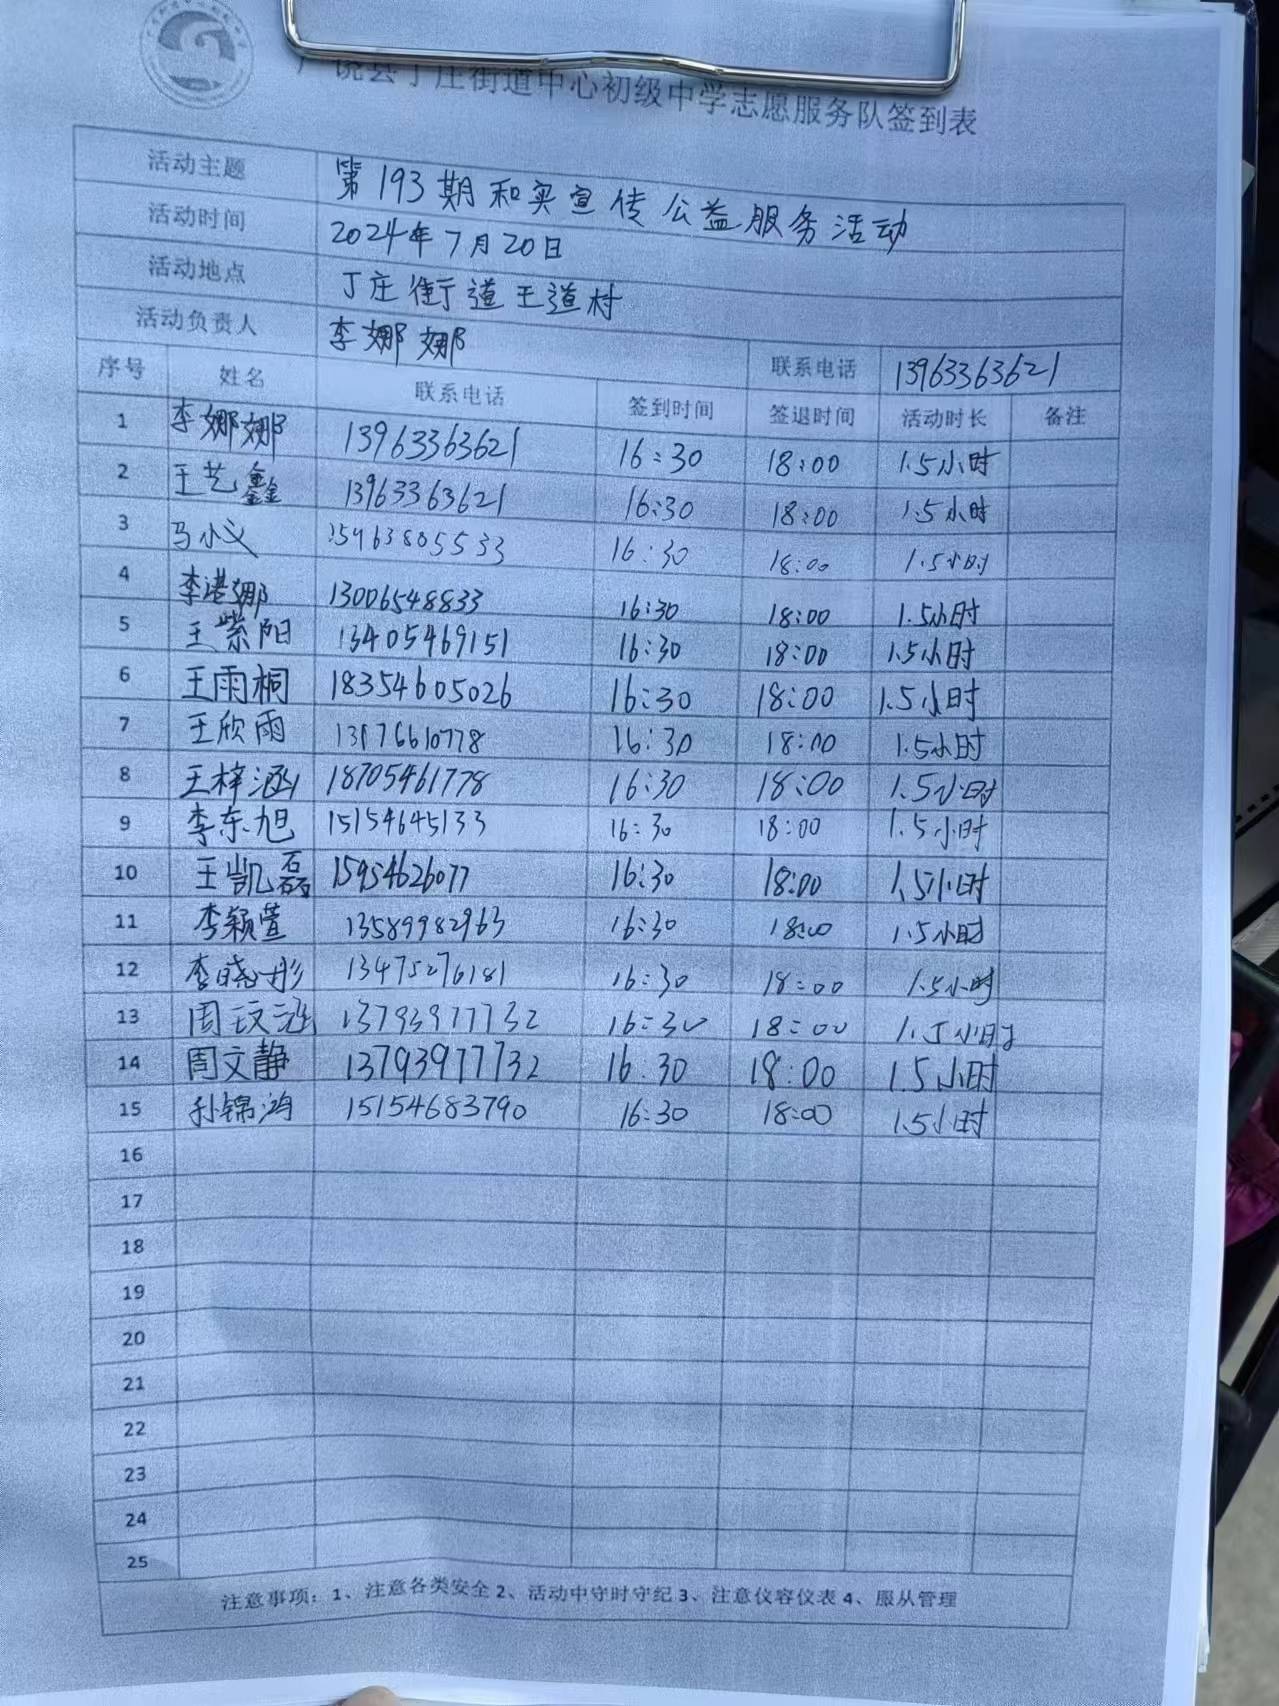 广饶县丁庄街道中心初级中学志愿服务队签到表
活动主题 第193期和实宣传公益服务活动
活动时间 2024年7月20日
活动地点 丁庄街道王道村
活动负责人 李娜娜 联系电话 13963363621
序号 姓名 联系电话 签到时间 签退时间 活动时长 备注
1 李娜娜 13963363621 16:30 18:00 1.5小时
2 王艺鑫 13963363621 16:30 18:00 1.5小时
3 马小义 15963805533 16:30 18:00 1.5小时
4 李港娜 13006548833 16:30 18:00 1.5小时
5 王紫阳 13405469151 16:30 18:00 1.5小时
6 王雨桐 18354605026 16:30 18:00 1.5小时
7 王欣雨 16:30 18:00 1.5小时
8 王梓涵 18705461778 16:30 18:00 1.5小时
9 李东旭 15154645133 16:30 18:00 1.5小时
10 王凯磊 15954626077 16:30 18:00 1.5小时
11 李颖萱 13589982963 16:30 18:00 1.5小时
12 李晓彤 13475276181 16:30 18:00 1.5小时
13 周玟涵 13793977732 16:30 18:00 1.5小时
14 周文静 13793977732 16:30 18:00 1.5小时
15 锦鸿 15154683790 16:30 18:00 1.5小时
16
17
18
19
20
21
22
23
24
25
注意事项：1、注意各类安全 2、活动中守时守纪 3、注意仪容仪表 4、服从管理